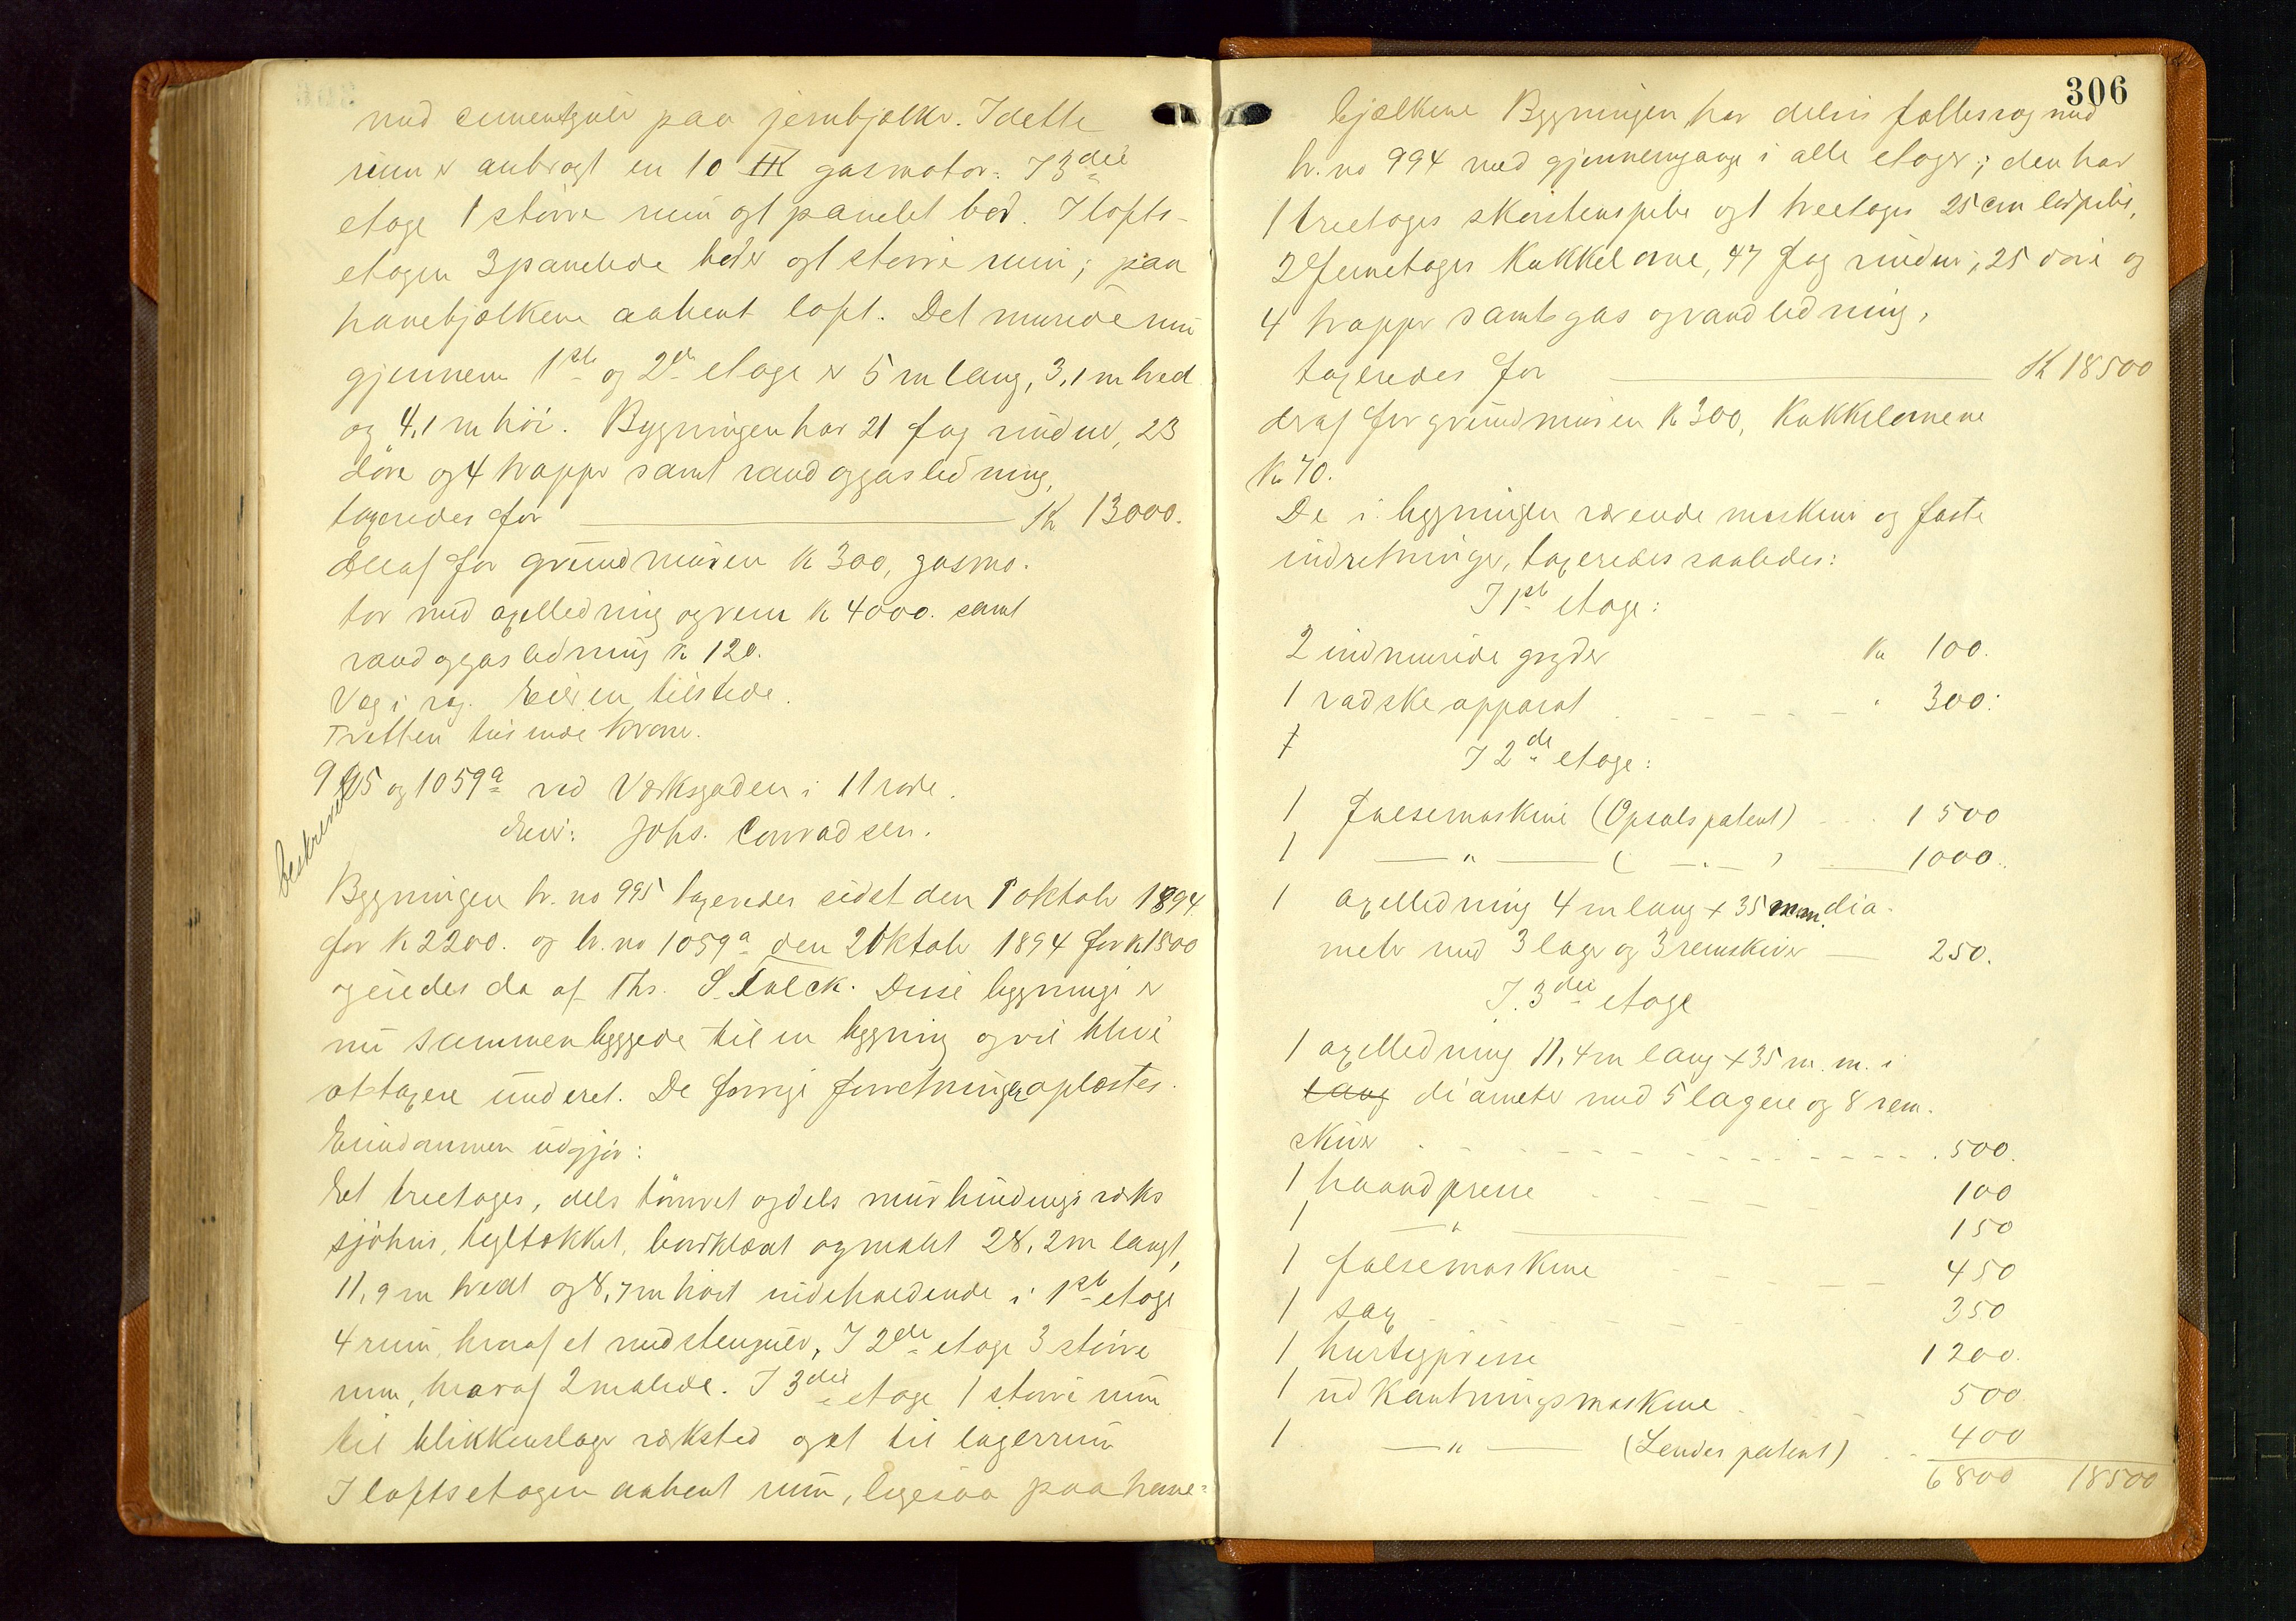 med cementgulv paa jernbjælker. I dette
rum er anbragt en 10 HK gasmotor. I 3die
etage 1 större rum og 1 panelet bod. I lofts-
etagen 3 panelede boder og 1 större rum; paa
hanebjælkene aabent loft. Det murede rum
gjennem 1ste og 2den etage er 5 m lang, 3,1 m bred
og 4,1 m höi. Bygningen har 21 fag vinduer, 23
döre og 4 trapper samt vand og gasledning,
taxeredes for K 13000.
deraf for grundmuren K 300, gasmo-
tor med axelledning og rem K 4000. samt
vand og gasledning K 120.
Væg i væg. Eieren tilstede.
Tretten tusinde kroner.
995 og 1059a ved Verksgaden i 11 rode.
beskrevet
Eier: Johs. Conradsen.
Bygningen br. no 995 taxeredes sidst den 1 oktober 1894
for K 2200. og br. no 1059a den 2 oktober 1894 for K 1500
og eiedes da af Ths. S. Falck. Disse bygninger er
nu sammenbyggede til en bygning og vil blive
at taxere under et. De forrige forretninger oplæstes.
Eiendommen udgjör:
Et treetages, dels tömret og dels murbindingsverks
sjöhus, tegltækket, bordklædt og malet 28,2 m langt,
11,9 m bredt og 8,7 m höit indeholdende i 1ste etage
4 rum, hvoraf et med stengulv, I 2den etage 3 större
rum, hvoraf 2 malede. I 3die etage 1 större rum
til blikkenslager verksted og et til lagerrum
I loftsetagen aabent rum, ligesaa paa hane-
306
bjælkene Bygningen har delvis fælles væg med
br. no 994 med gjennemgange i alle etager; den har
1 treetages skorstenspibe og 1 treetages 25 cm lerpibe,
2 femetages kakkelovne, 47 fag vinduer, 25 döre og
4 trapper samt gas og vandledning,
taxeredes for K 18500
deraf for grundmuren K 300, Kakkelovnene
K 70.
De i bygningen værende maskiner og faste
indretninger, taxeredes saaledes:
I 1ste etage:
2 indmurede gryder Kr 100.
1 vadskeapparat " 300.
I 2den etage:
1 falsemaskine (Opsals patent) 1500
1 — " — ( — " — ) 1000.
1 axelledning 4 m lang + 35 mm dia-
meter med 3 lager og 3 remskiver — 250.
I 3die etage
1 axelledning 11,4 m lang + 35 m.m. i
lang diameter med 5 lagere og 8 rem-
skiver 500.
1 haandpresse 100
1 — " — 150
1 falsemaskine 450
1 sax 350
1 hurtigpresse 1200.
1 udkantningsmaskine 500
1 — " — (Lendes patent) 400
6800 18500